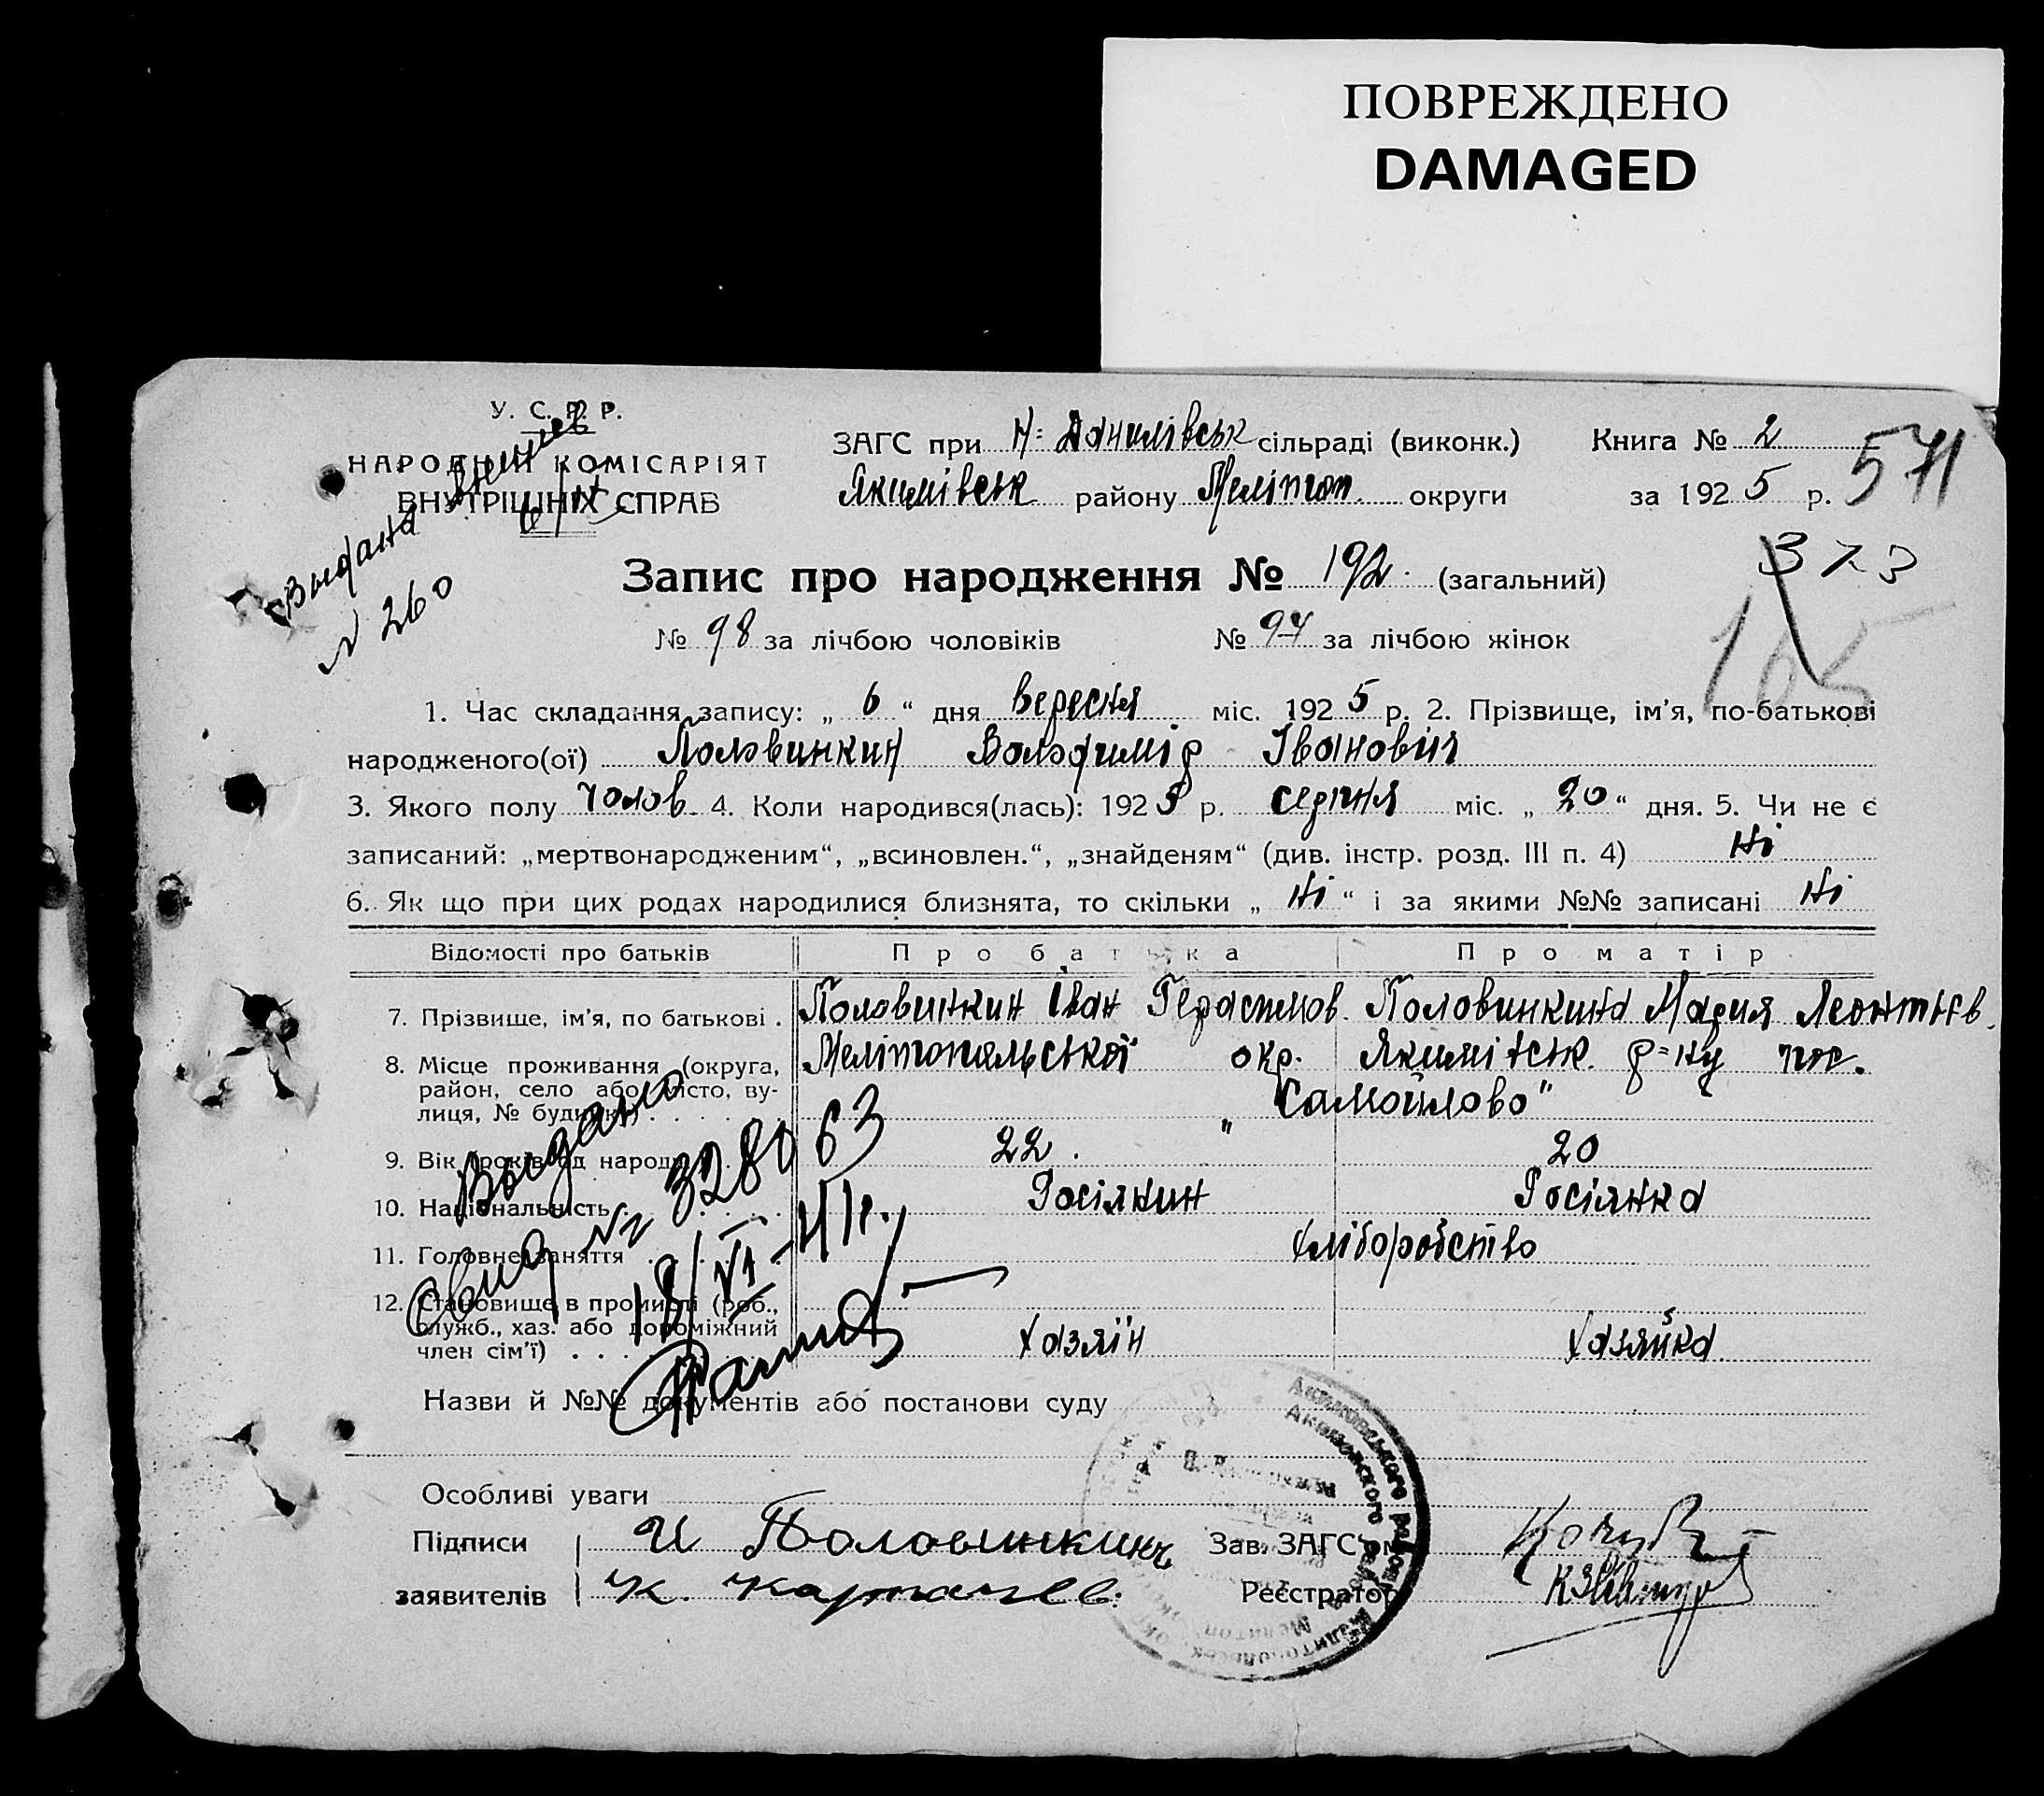 ПОВРЕЖДЕНО
DAMAGED
У. С. Р. Р.
НАРОДНИЙ КОМІСАРІЯТ
ВНУТРІШНІХ СПРАВ
Выдана
N 260
ЗАГС при Н-Данилівськ сільраді (виконк.)
Якимівськ району Мелітоп. округи
Книга № 2
за 1925 р.
571
373
165
Запис про народження № 192. (загальний)
№ 98 за лічбою чоловіків № 94 за лічбою жінок
1. Час складання запису: „ 6 “ дня вересня міс. 1925 р. 2. Прізвище, ім'я, по-батькові
народженого(ої) Половинкин Володимір Іванович
3. Якого полу чолов. 4. Коли народився(лась): 1925 р. серпня міс. „ 20 “ дня. 5. Чи не є
записаний: „мертвонародженим“, „всиновлен.“, „знайденям“ (див. інстр. розд. III п. 4) Ні
6. Як що при цих родах народилися близнята, то скільки „ Ні “ і за якими №№ записані Ні
Відомості про батьків Про батька Про матір
7. Прізвище, ім'я, по батькові . Половинкин Іван Герасимов. Половинкина Мария Леонтьев.
8. Місце проживання (округа, Мелітопольської окр. Якимівськ. р=ну пос.
район, село або місто, ву- „Самойлово"
лиця, № будинку) . . . . .
9. Вік (років од народж.) . . 22. 20
10. Національність . . . . . Росіянин Росіянка
11. Головне заняття . . . . хліборобство
12. Становище в промислі (роб.,
служб., хаз. або допоміжний
член сім'ї) . . . . Хазяїн Хазяйка
Выдано
Свид № 328063
18/VI-41г.
Назви й №№ документів або постанови суду
Особливі уваги
Підписи И Половинкинъ Зав. ЗАГС'ом
заявителів К. Карпачев. Реєстратор